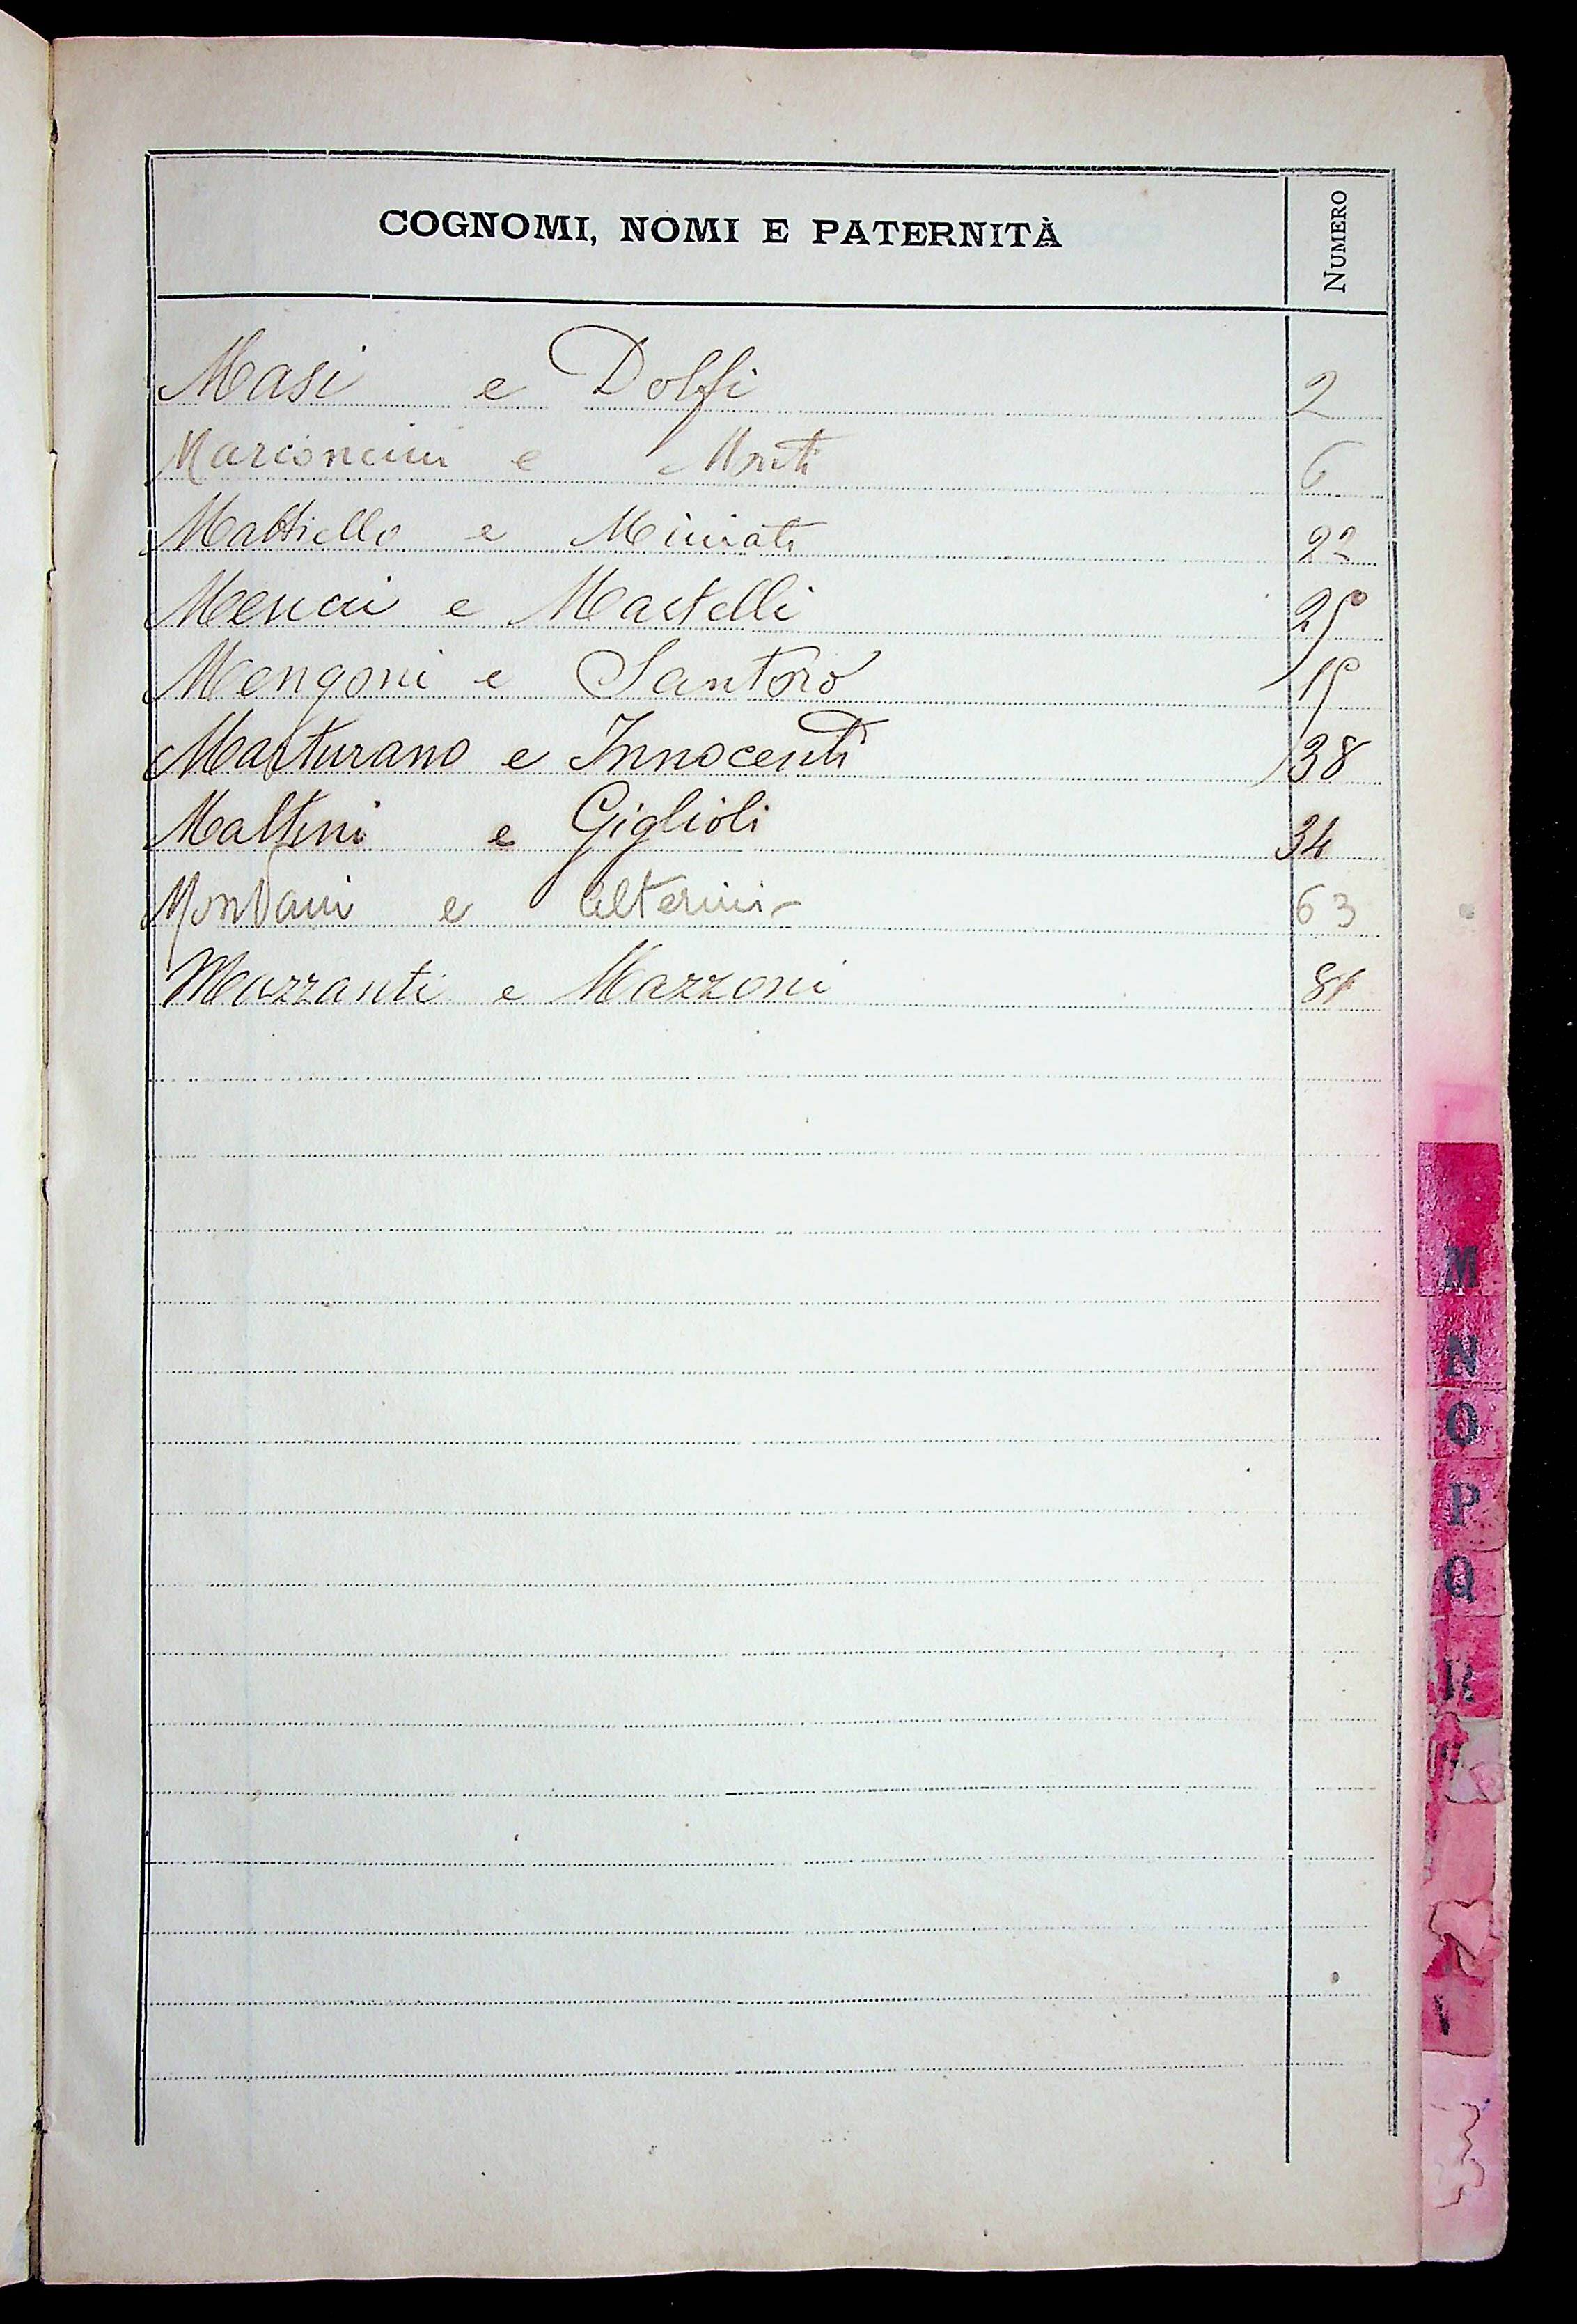 COGNOMI, NOMI E PATERNITÀ NUMERO
Masi e Dolfi 2
Marconcini e Monti 6
Mattiello e Miniati 22
Mencai e Martelli 25
Mengoni e Santoro 15
Marturano e Innocenti 38
Malteni e Giglioli 34
e Alterini 63
Mazzanti e Mazzoni 81
M
N
O
P
Q
R